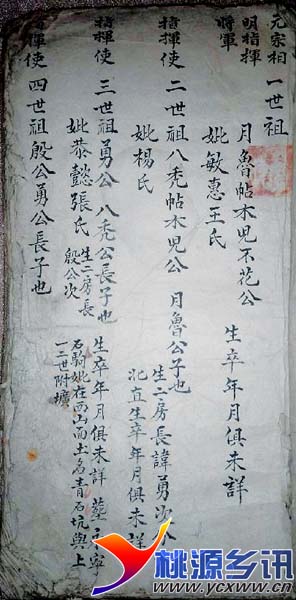 元家相
明指揮
將軍
一世祖
月魯帖木兒不花公
生卒年月俱未詳
妣敏惠王氏
指揮使
二世祖八禿帖木兒公
月魯公子也
生二房長諱勇次
妣楊氏
北直生卒年月俱未詳
指揮使
三世祖勇公
八禿公長子也
生卒年月俱未詳
葬京寧
妣恭懿張氏
生二房長
殷公次
石騎妣在西山面土名青石坑與上
一二世附壙
指揮使
四世祖殷公勇公長子也
桃源乡讯
www.ycxww.cn